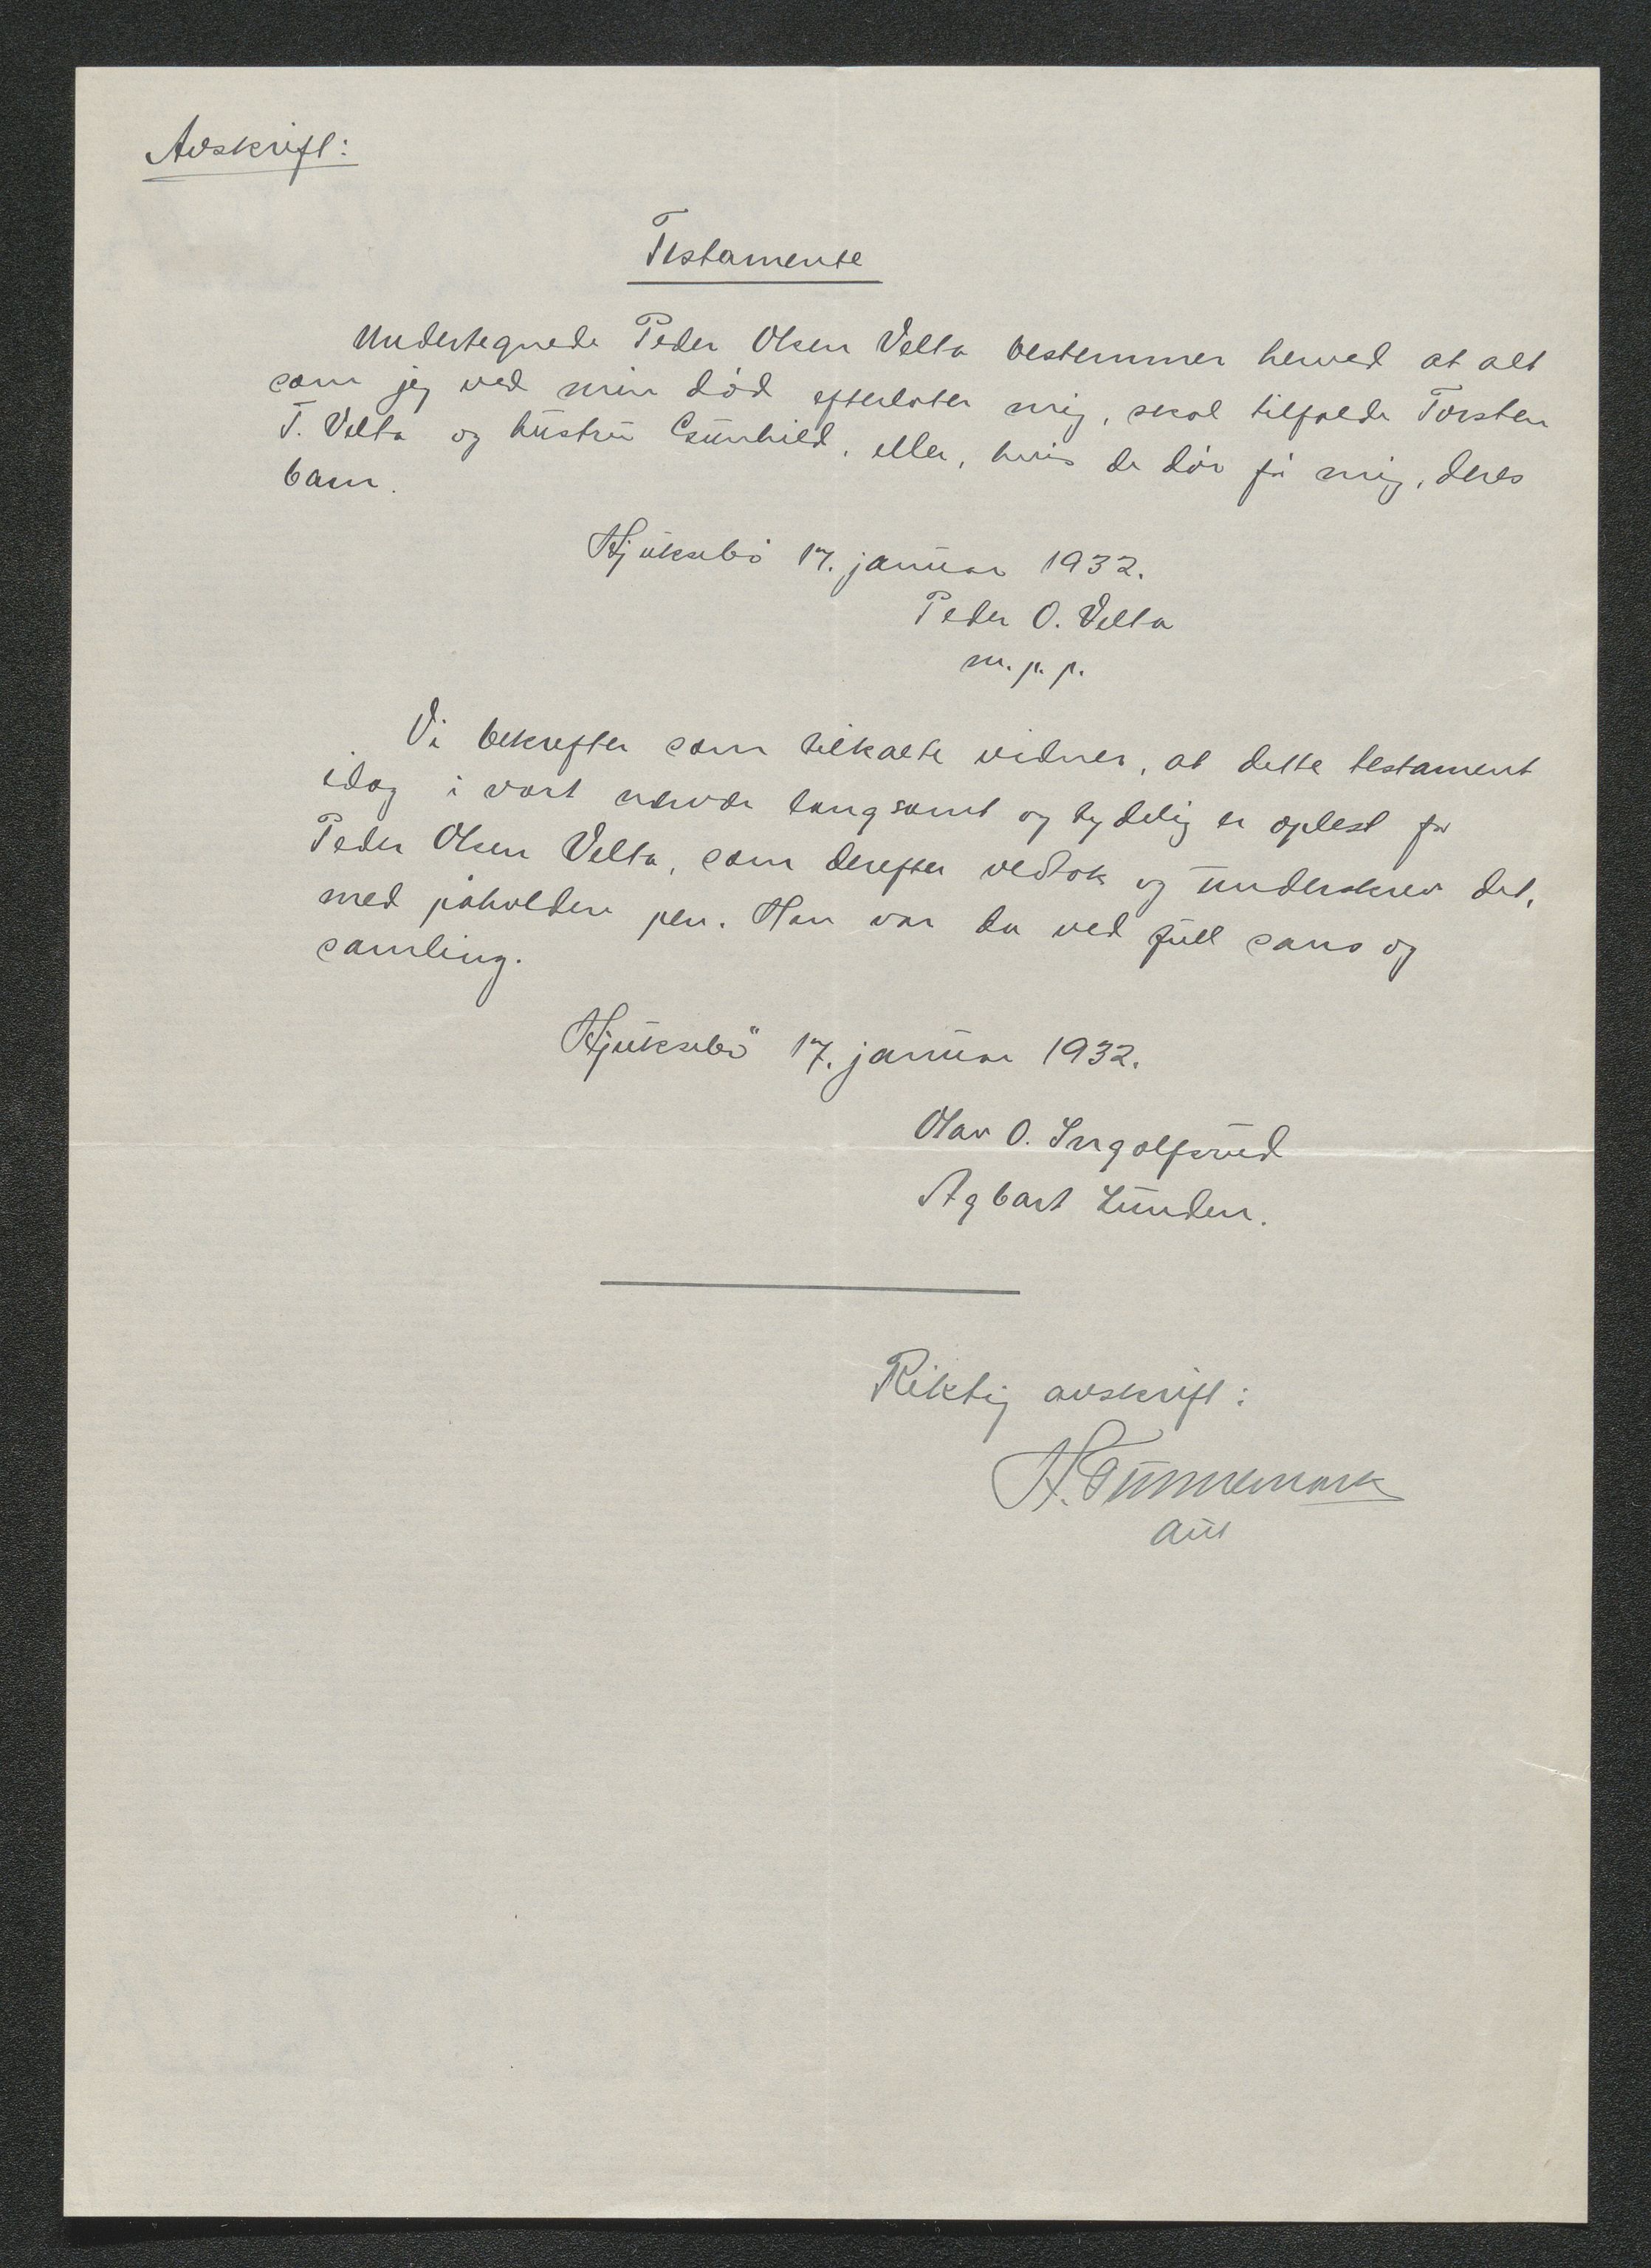 Avskrift:
Testamente
Undertegnede Peder Olsen Velta bestemmer herved at alt
som jeg ved min död efterlater mig, skal tilfalde Torsten
T. Velta og hustru Gunhild, eller, hvis de dör för mig, deres
barn.
Hjuksebö 17. januar 1932.
Peder O. Velta
m. p. p.
Vi bekrefter som tilkalte vidner, at dette testament
idag i vart nærvær langsomt og tydelig er oplest for
Peder Olsen Velta, som derefter vedtok og underskrev det,
med påholden pen. Han var da ved full sans og
samling.
Hjuksebö 17. januar 1932.
Olav O. Ingolfsrud
Agbart Lunden.
Riktig avskrift:
H. Tinnemark